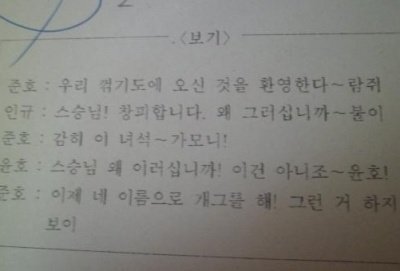 2
<보기>
준호 : 우리 꺾기도에 오신 것을 환영한다~람쥐
인규 : 스승님! 창피합니다. 왜 그러십니까~불이
준호 : 감히 이 녀석~가모니!
윤호 : 스승님 왜 이러십니까! 이건 아니죠~윤호!
준호 : 이제 네 이름으로 개그를 해! 그런 거 하지
보이